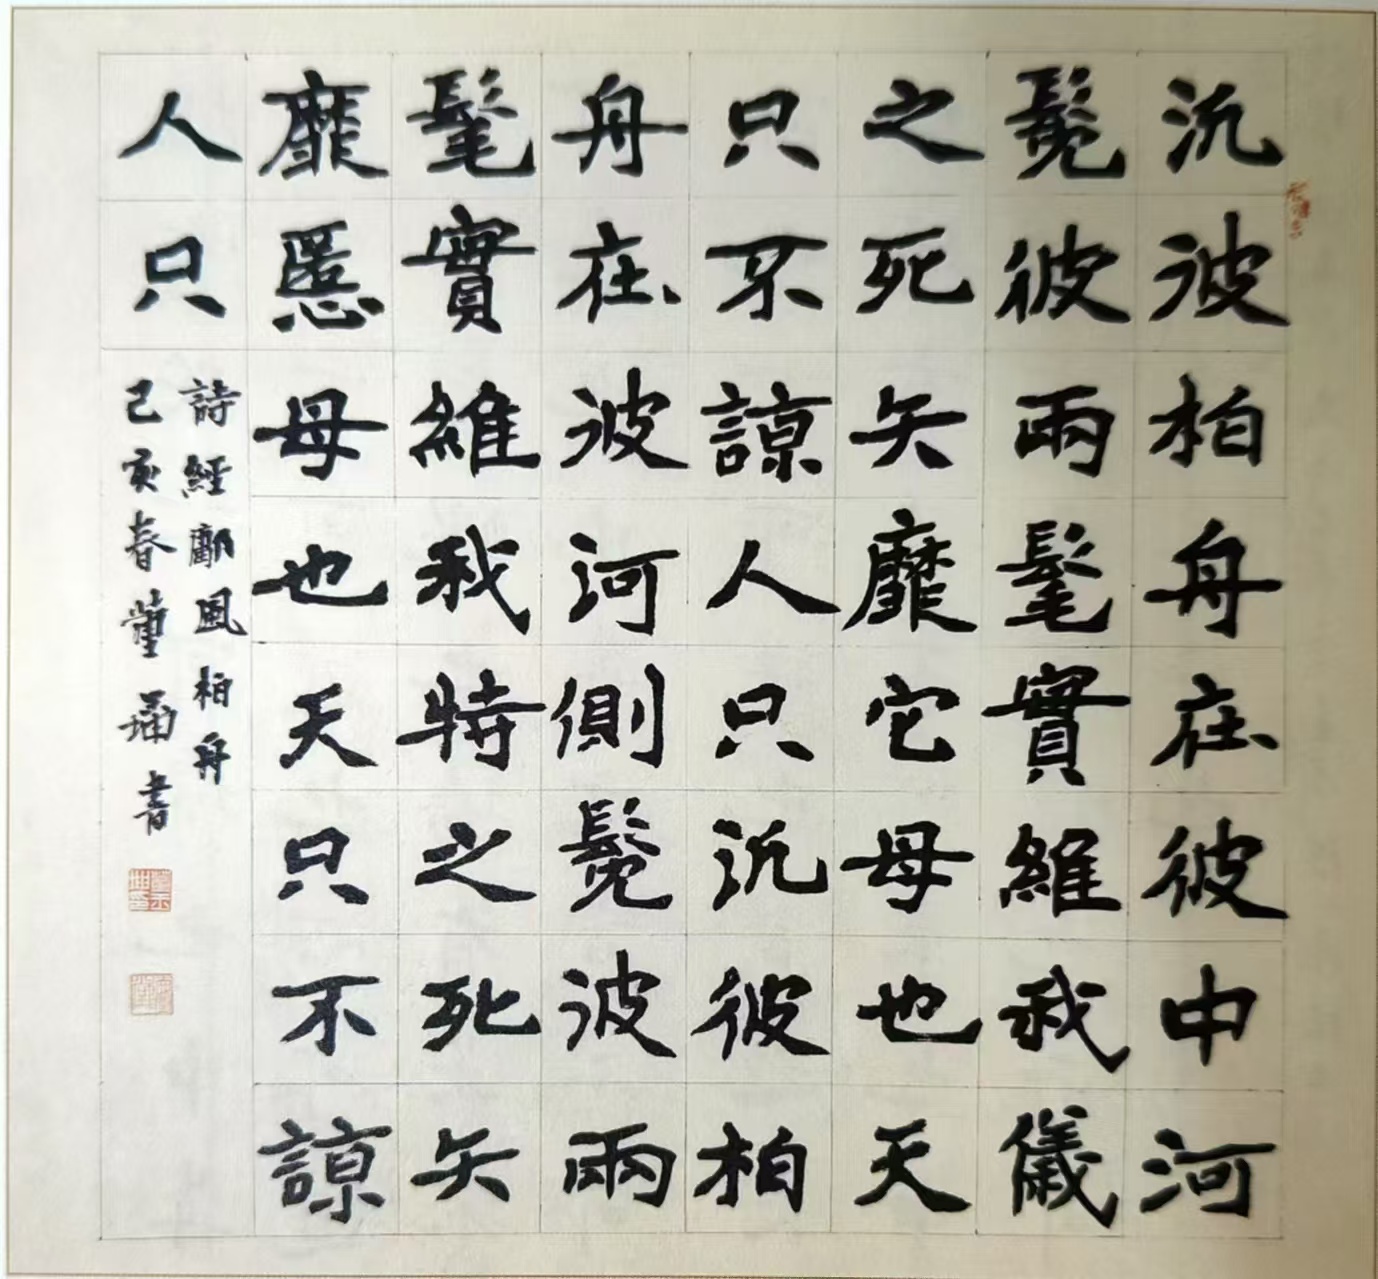 汎波柏舟在彼中河
髧彼兩髦實維我儀
之死矢靡它母也天
只不諒人只汎彼柏
舟在波河側髧波兩
髦實維我特之死矢
靡慝母也天只不諒
人只
詩經鄘風柏舟
己亥春董書